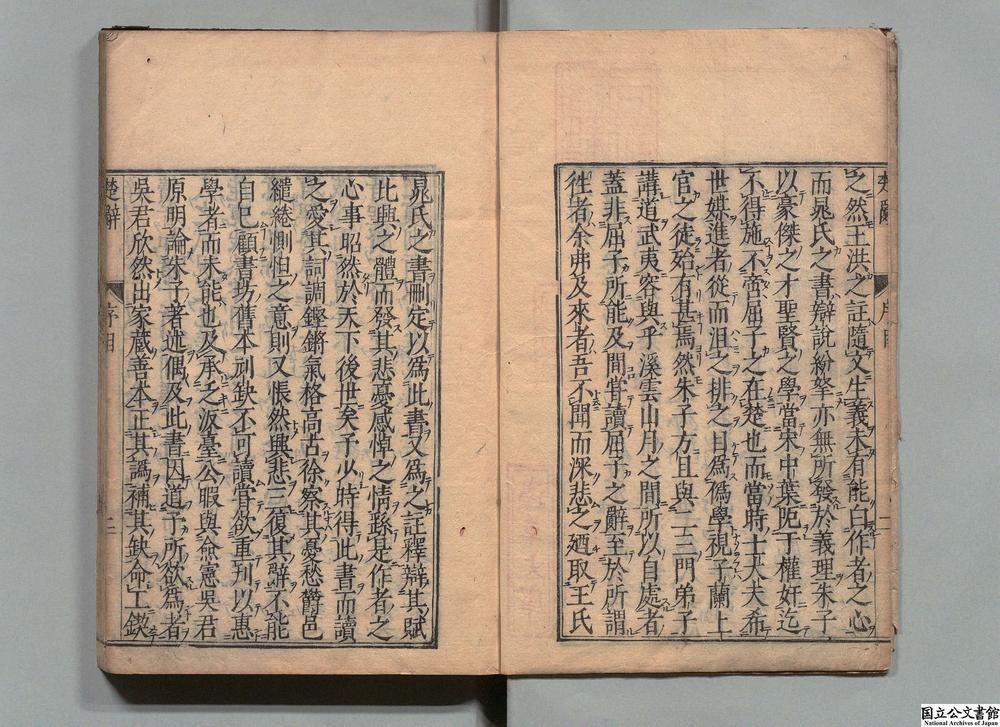 之然王洪之註隨文生義未有能白作者之心
而晁氏之書辯說紛拏亦無所發於義理朱子
以豪傑之才聖賢之學當宋中葉阨于權奸迄
不得施不啻屈子之在楚也而當時士大夫希
世媒進者從而沮之排之目爲僞學視子蘭上
官之徒殆有甚焉然朱子方且與二三門弟子
講道武夷容與乎溪雲山月之間所以自處者
蓋非屈子所能及間甞讀屈子之辭至於所謂
徃者余弗及來者吾不聞而深悲之廼取王氏
楚辭 序目 二
晁氏之書刪定以爲此書又爲之註釋辯其賦
比興之體而發其悲憂感悼之情繇是作者之
心事昭然於天下後世矣予少時得此書而讀
之愛其詞調鏗鏘氣格高古徐察其憂愁欝邑
繾綣惻怛之意則又悵然興悲三復其辭不能
自已顧書坊舊本刓缺不可讀甞欲重刋以惠
學者而未能也及承乏汳臺公暇與僉憲吳君
原明論朱子著述偶及此書因道予所欲爲者
吳君欣然出家蔵善本正其譌補其缺命工鍥
楚辭 序目 二
国立公文書館
National Archives of Japan